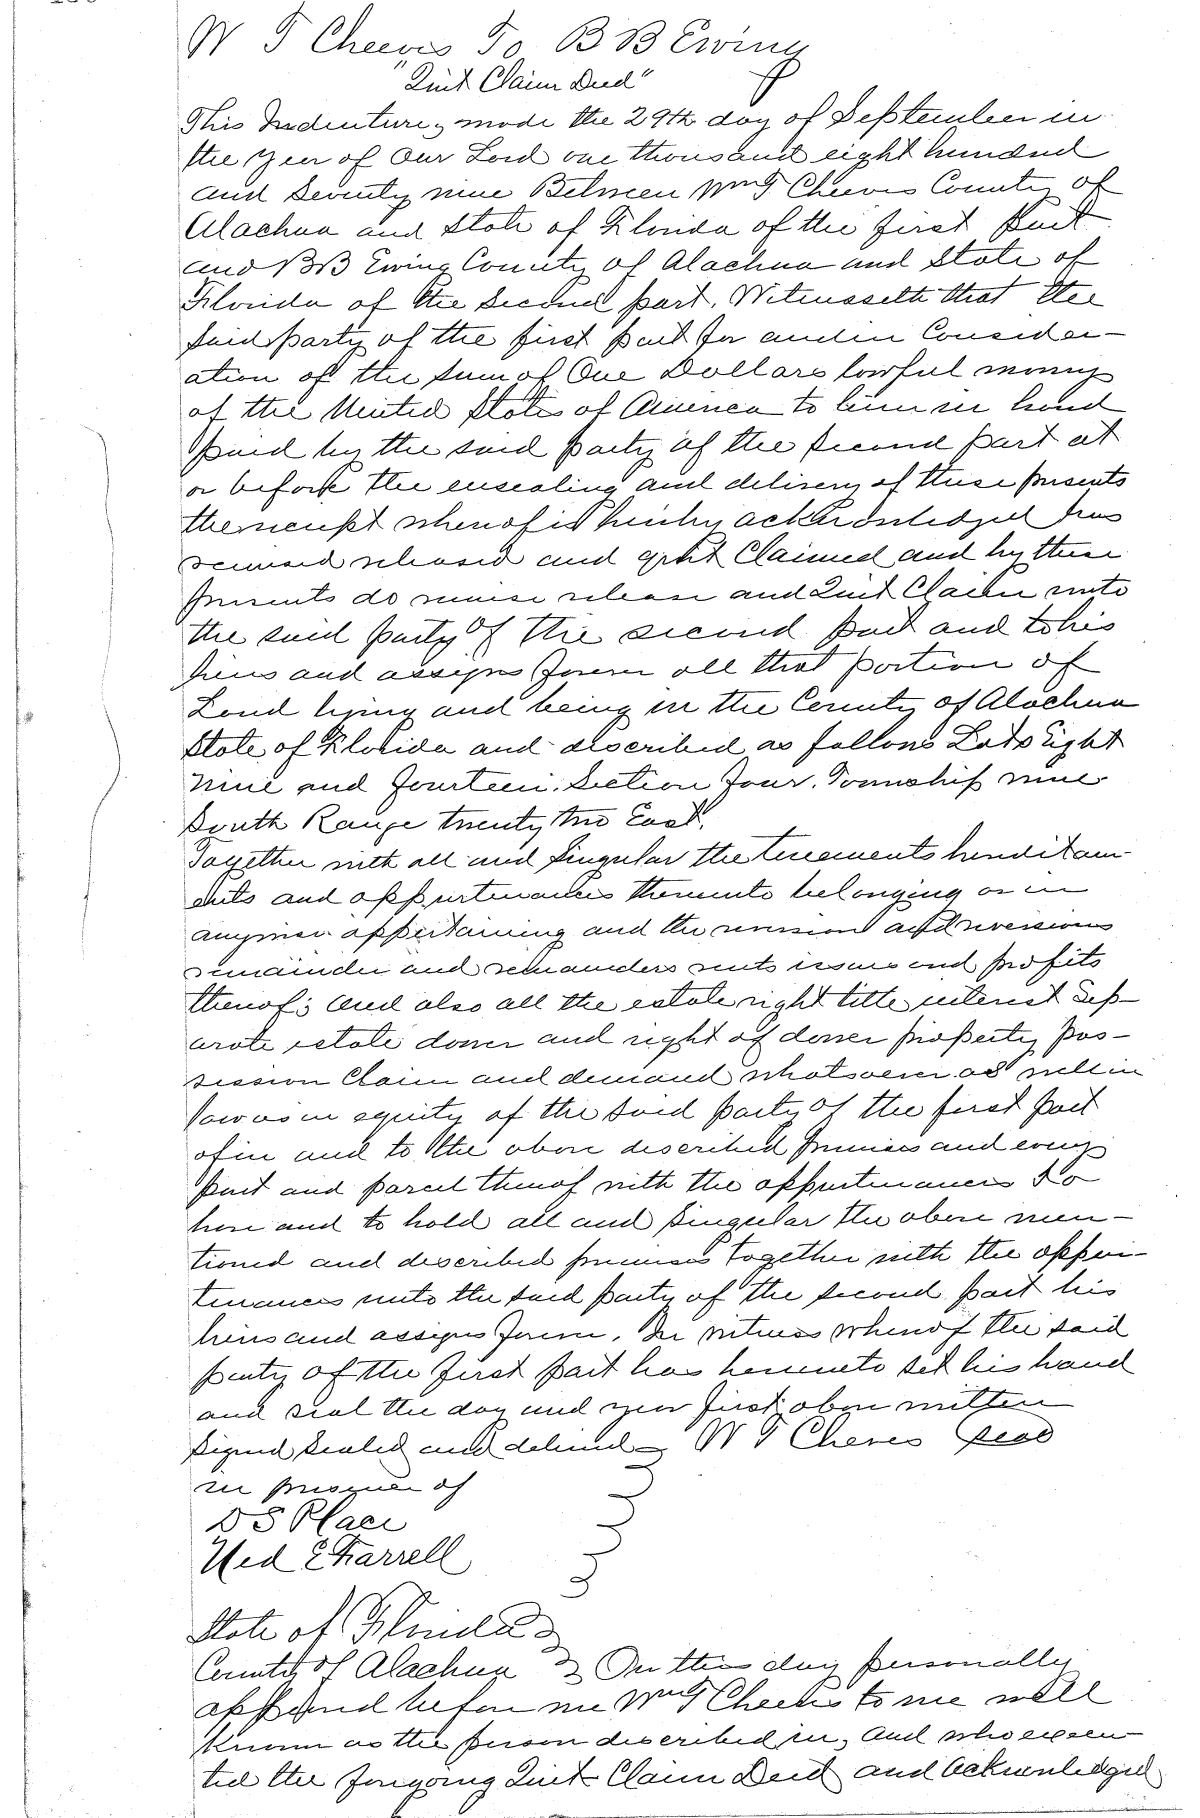 W T Cheeves To B B Ewing
"Quit Claim Deed"
This Indenture, made the 29th day of September in
the year of our Lord one thousand eight hundred
and Seventy nine Between Wm T Cheeves County of
Alachua and State of Florida of the first part
and B B Ewing County of Alachua and State of
Florida of the Second part. Witnesseth that the
said party of the first part for and in Consider-
ation of the sum of One Dollars lawful money
of the United States of America to him in hand
paid by the said party of the second part at
or before the ensealing and delivery of these presents
the receipt whereof is hereby acknowledged has
remised released and quit Claimed and by these
presents do remise release and Quit Claim unto
the said party of the second part and to his
heirs and assigns forever all that portion of
Land lying and being in the County of Alachua
State of Florida and described as follows Lots Eight
nine and fourteen. Section four. Township nine
South Range twenty two East.
Together with all and singular the tenements heriditam-
ents and appurtenances thereunto belonging or in
anywise appertaining and the revision and reversions
remainder and remainders rents issues and profits
thereof; and also all the estate right title interest Sep-
arate estate dower and right of dower property pos-
session Claim and demand whatsoever as well in
law as in equity of the said party of the first part
of in and to the above described premises and every
part and parcel thereof with the appurtenances To
have and to hold all and singular the above men-
tioned and described premises together with the appur-
tenances unto the said party of the second part his
heirs and assigns forever. In witness whereof the said
party of the first part has hereunto set his hand
and seal the day and year first above written
Signed Sealed and delivered W T Cheves Seal
in presence of
D S Place
Ned E Farrell
State of Florida
County of Alachua On this day personally
appeared before me Wm T Cheeves to me well
known as the person described in, and who execu-
ted the foregoing Quit Claim Deed and acknowledged